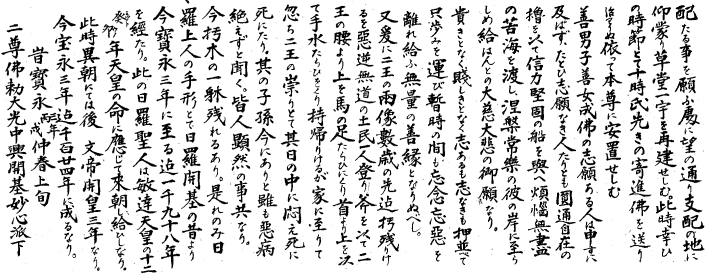 配たる事を願ふ處に望の通り支配の地に
仰蒙り草堂一宇を再建せしむ此時幸ひ
の時節とて十時氏先きの寄進佛を送り
治さぬ依つて本尊に安置せしむ
善男子善女成佛の志願ある人は申すに
及ばずたとひ志願なき人たりとも圓通自在の
櫓を以て信力堅固の船を與へ煩悩無盡
の苦海を渡し涅槃常樂の彼の岸に至ら
しめ給はんとの大慈大悲の御願なり。
貴きとなく賤しきとなく志あるも志なきも押並べて
只歩みを運び暫時の間も忘念忘惡を
離れ給ふ無量の善縁となりぬべし。
又爰に二王の両像數歳の先迠朽残けけ
るを惡逆無道の土民人登り斧を以て二
王の腰より上を馬の足たらひにとり首より上を以
て手水たらひをとり持帰りけるが家に至りて
忽ち二王の祟りとて其日の中に悶え死に
死にたり。其の子孫今にありと雖も惡病
絶えずと聞く。皆人顕然の事共なり。
今朽木の一躰残れるあり。是れのみ日
羅上人の手形とて日羅開基の昔より
今寶永三年に至る迠一千九十八年
を經たり。此の日羅聖人は敏達天皇の十二
年天皇の命に應じて来朝し給ひしなり。
此時異朝にては後 文帝開皇三年なり。
今宝永三年迠千百廿四年に成るなり。
昔寳永三丙戌年仲春上旬
二尊佛勅大光中興開基妙心派下